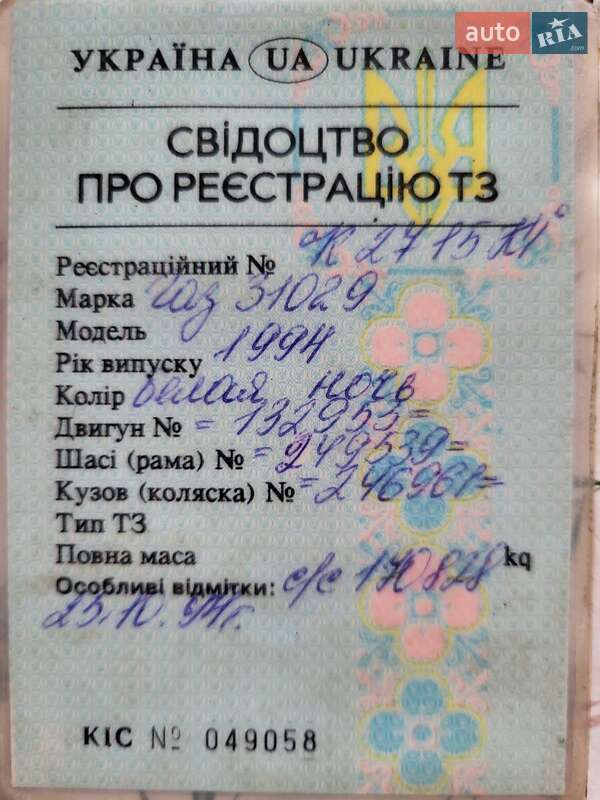 auto RIA.com
УКРАЇНА UA UKRAINE
СВІДОЦТВО
ПРО РЕЄСТРАЦІЮ ТЗ
Реєстраційний № К 2715
Марка Газ 31029
Модель
Рік випуску 1994
Колір белая ночь
Двигун № =132955=
Шасі (рама) № =249539=
Кузов (коляска) № =246961=
Тип ТЗ
Повна маса kg
Особливі відмітки: с/с 170828
25.10.94г.
КІС № 049058